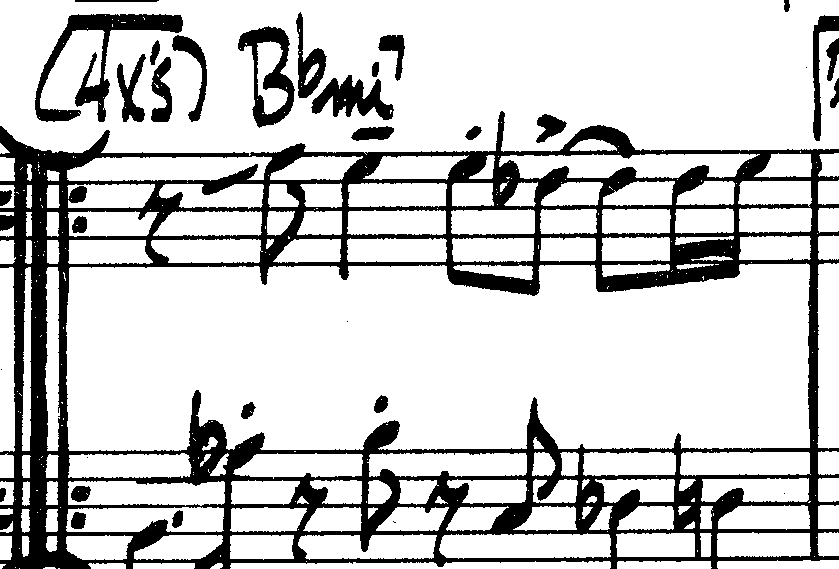 (4x's) B♭mi7